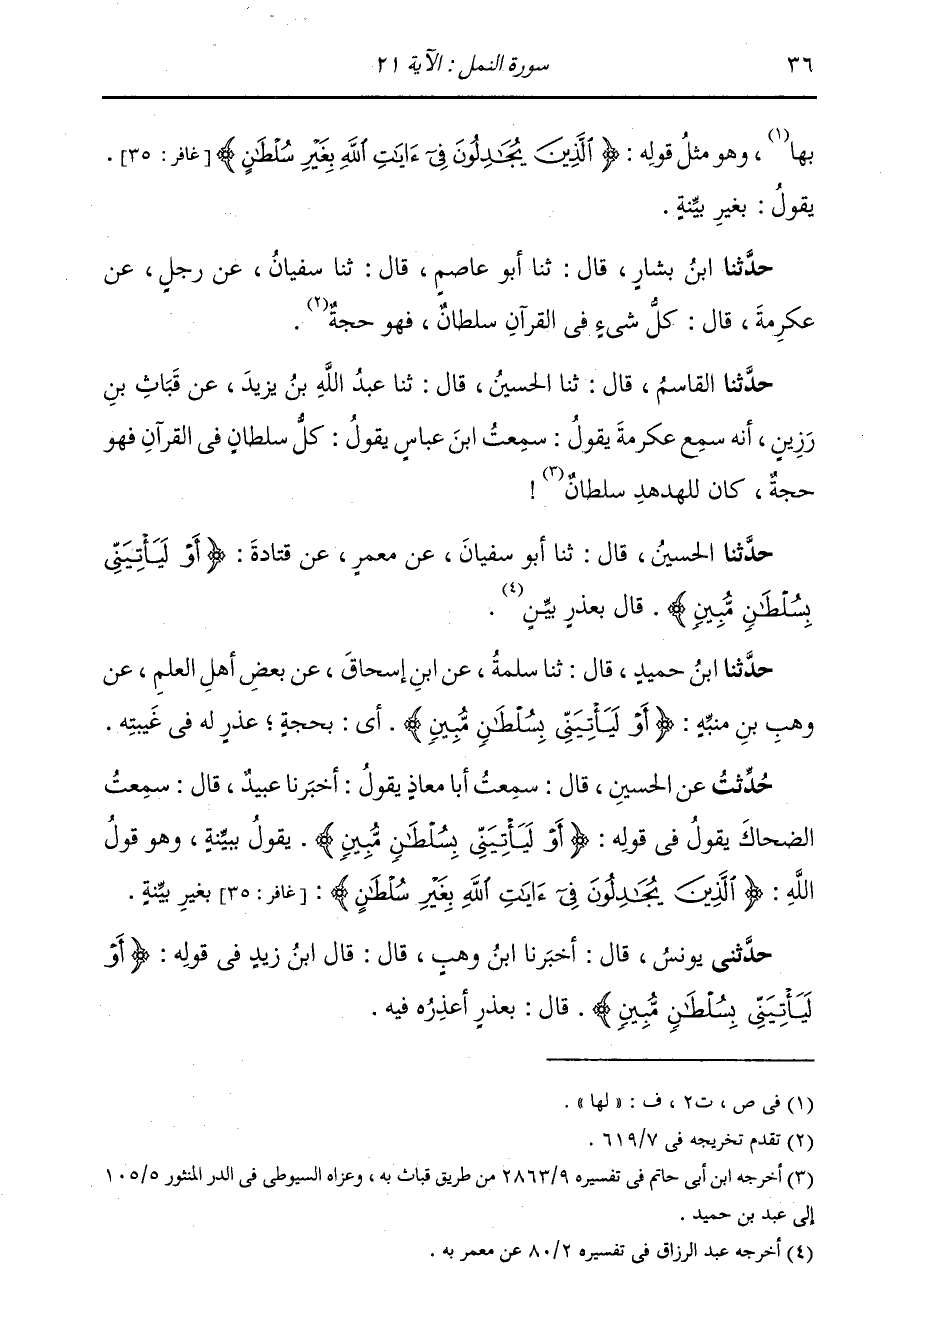 ٣٦
سورة النمل : الآية ٢١
بها(١) ، وهو مثلُ قولِه : ﴿ ٱلَّذِينَ يُجَٰدِلُونَ فِىٓ ءَايَٰتِ ٱللَّهِ بِغَيْرِ سُلْطَٰنٍ ﴾ [غافر : ٣٥] .
يقولُ : بغيرِ بيِّنةٍ .
حدَّثنا ابنُ بشارٍ ، قال : ثنا أبو عاصمٍ ، قال : ثنا سفيانُ ، عن رجلٍ ، عن
عكرمةَ ، قال : كلُّ شىءٍ فى القرآنِ سلطانٌ ، فهو حجةٌ(٢) .
حدَّثنا القاسمُ ، قال : ثنا الحسينُ ، قال : ثنا عبدُ اللَّهِ بنُ يزيدَ ، عن قَبَاثِ بنِ
رَزِينٍ ، أنه سمِع عكرمةَ يقولُ : سمِعتُ ابنَ عباسٍ يقولُ : كلُّ سلطانٍ فى القرآنِ فهو
حجةٌ ، كان للهدهدِ سلطانٌ(٣) !
حدَّثنا الحسينُ ، قال : ثنا أبو سفيانَ ، عن معمرٍ ، عن قتادةَ : ﴿ أَوْ لَيَأْتِيَنِّى
بِسُلْطَٰنٍ مُّبِينٍ ﴾ . قال بعذرٍ بيِّنٍ(٤) .
حدَّثنا ابنُ حميدٍ ، قال : ثنا سلمةُ ، عن ابنِ إسحاقَ ، عن بعضِ أهلِ العلمِ ، عن
وهبِ بنِ منبِّهٍ : ﴿ أَوْ لَيَأْتِيَنِّى بِسُلْطَٰنٍ مُّبِينٍ ﴾ . أى : بحجةٍ ؛ عذرٍ له فى غَيبتِه .
حُدِّثتُ عن الحسينِ ، قال : سمِعتُ أبا معاذٍ يقولُ : أخبَرنا عبيدٌ ، قال : سمِعتُ
الضحاكَ يقولُ فى قولِه : ﴿ أَوْ لَيَأْتِيَنِّى بِسُلْطَٰنٍ مُّبِينٍ ﴾ . يقولُ ببيِّنةٍ ، وهو قولُ
اللَّهِ : ﴿ ٱلَّذِينَ يُجَٰدِلُونَ فِىٓ ءَايَٰتِ ٱللَّهِ بِغَيْرِ سُلْطَٰنٍ ﴾ : [غافر : ٣٥] بغيرِ بيِّنةٍ .
حدَّثنى يونسُ ، قال : أخبَرنا ابنُ وهبٍ ، قال : قال ابنُ زيدٍ فى قولِه : ﴿ أَوْ
لَيَأْتِيَنِّى بِسُلْطَٰنٍ مُّبِينٍ ﴾ . قال : بعذرٍ أعذِرُه فيه .
(١) فى ص ، ت٢ ، ف : « لها » .
(٢) تقدم تخريجه فى ٦١٩/٧ .
(٣) أخرجه ابن أبى حاتم فى تفسيره ٢٨٦٣/٩ من طريق قباث به ، وعزاه السيوطى فى الدر المنثور ١٠٥/٥
إلى عبد بن حميد .
(٤) أخرجه عبد الرزاق فى تفسيره ٨٠/٢ عن معمر به .